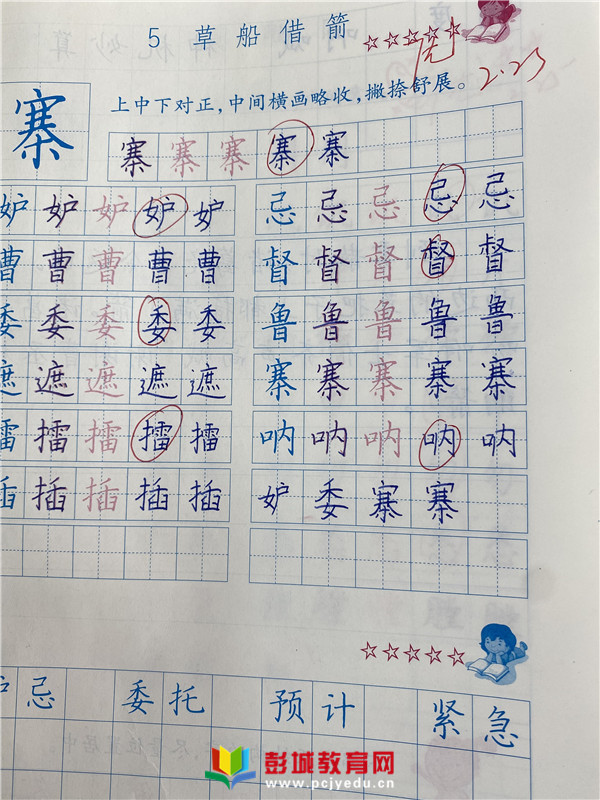 5 草 船 借 箭
2.23
上中下对正，中间横画略收，撇捺舒展。
寨 寨 寨 寨 寨 寨
妒 妒 妒 妒 妒 忌 忌 忌 忌 忌
曹 曹 曹 曹 曹 督 督 督 督 督
委 委 委 委 委 鲁 鲁 鲁 鲁 鲁
遮 遮 遮 遮 遮 寨 寨 寨 寨 寨
擂 擂 擂 擂 擂 呐 呐 呐 呐 呐
插 插 插 插 插 妒 委 寨 寨
妒 忌 委 托 预 计 紧 急
彭城教育网
www.pcjyedu.cn